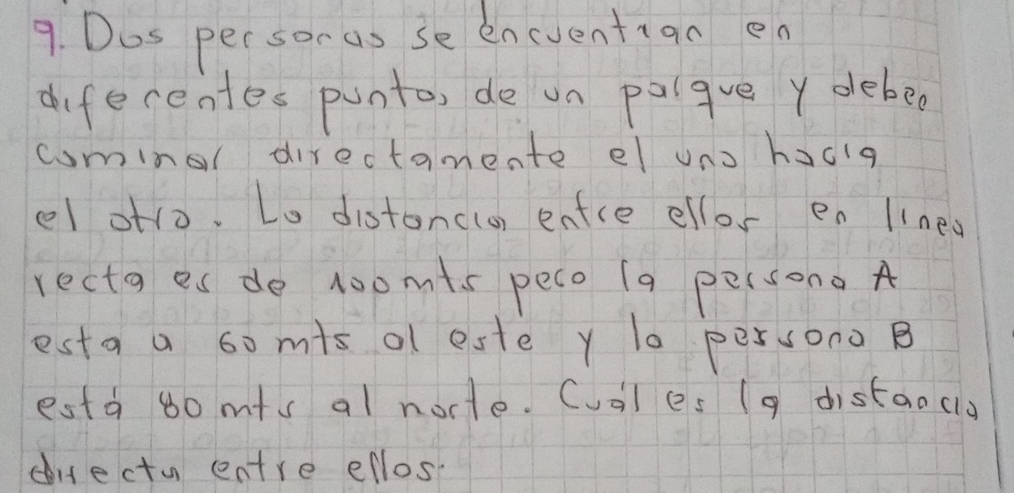 9. Dos personas se encuentran en
diferentes puntos de un parque y deben
caminar directamente el uno hacia
el otro. La distancia entre ellos en linea
recta es de 100mts pero la persona A
esta a 60 mts al este y la persona B
está 80 mts al norte. Cuál es la distancia
directa entre ellos.